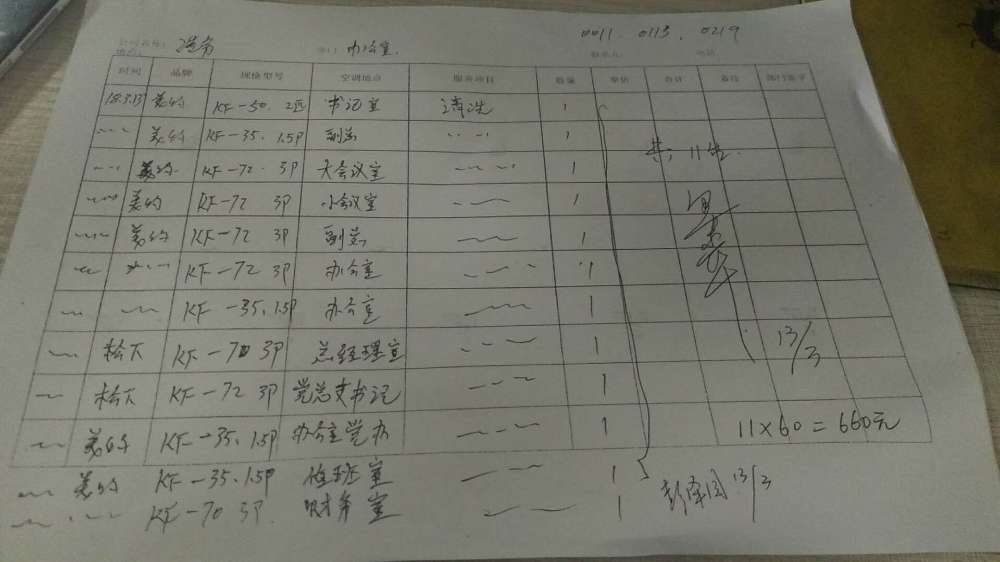 0011. 0113. 0219
部门 办公室
时间 品牌 规格型号 空调地点 服务项目 数量 单价 合计 备注 部门签字
18.3.13 美的 KF-50. 2匹 书记室 清洗 1
~~ 美的 KF-35. 1.5P 副总 ~~ 1
~~ 美的 KF-72. 3P 大会议室 ~~ 1
~~ 美的 KF-72 3P 小会议室 ~~ 1
~~ 美的 KF-72 3P 副总 ~~ 1
~~ ~~ KF-72 3P 办公室 ~~ 1
~~ ~~ KF-35.1.5P 办公室 ~~ 1
~~ 松下 KF-70 3P 总经理室 ~~ 1
~~ 松下 KF-72 3P 党总支书记 ~~ 1
~~ 美的 KF-35.1.5P 办公室党办 ~~ 1
~~ 美的 KF-35.1.5P 值班室 ~~ 1
~~ ~~ KF-70 3P. 财务室 ~~ 1
共: 11台.
13/3
11×60=660元
13/3